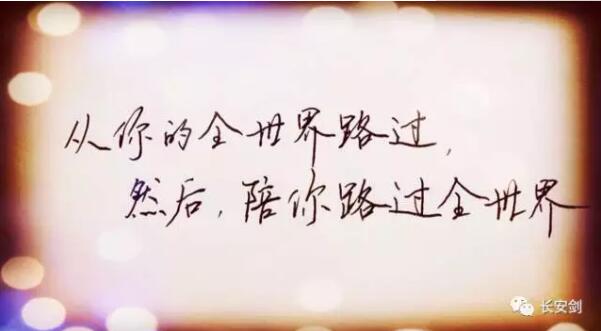 从你的全世界路过，
然后，陪你路过全世界
长安剑